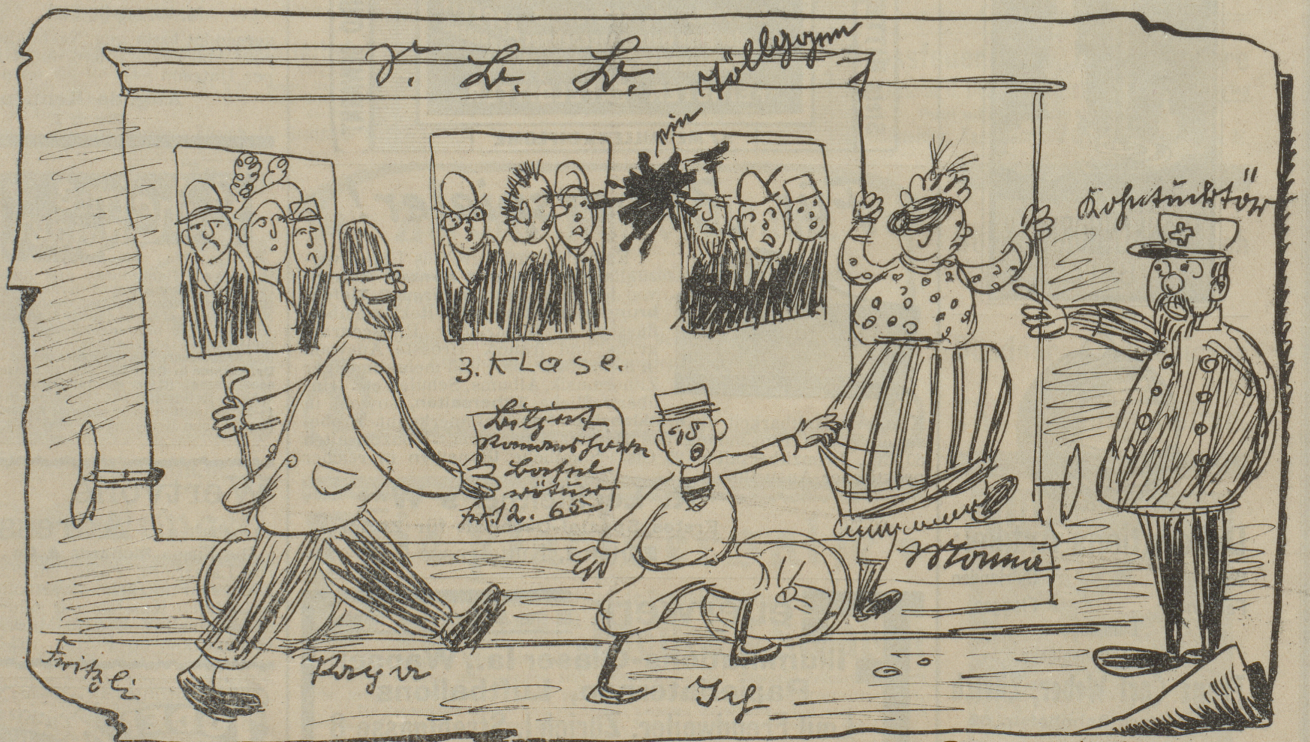 S. B. B.
ein Töllggen
Kohntucktör
3. KLase.
Biljet
Romanshorn
Basel
rötur
Fr. 12. 65
Mama
Fritzli
Papa
Ich